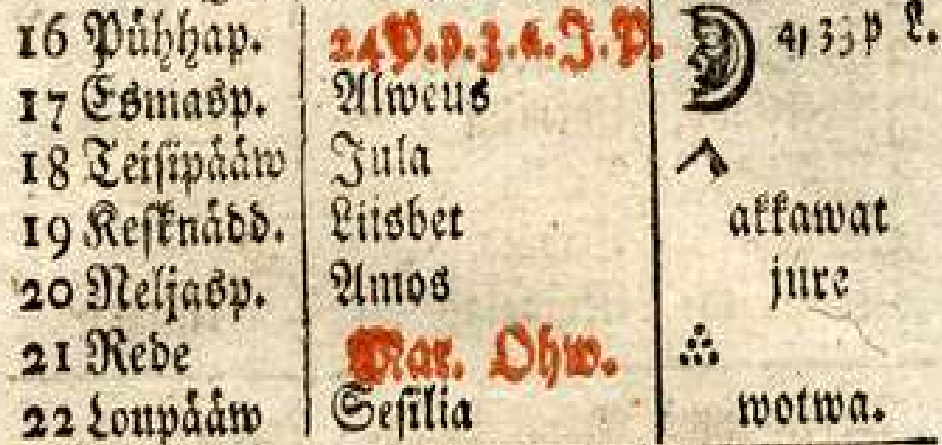 16 Pühhap. 24 P. p. 3. k. J. P. 4, 33 p L.
17 Esmasp. Alweus
18 Teisipääw Jula
19 Kesknädd. Liisbet akkawat
20 Neljasp. Amos jure
21 Rede Mar. Ohw.
22 Loupääw Sesilia wotwa.